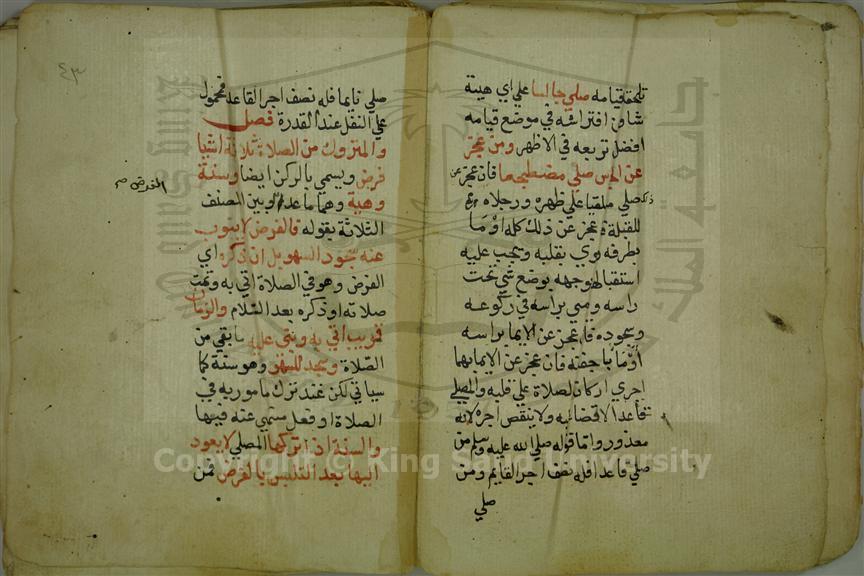 تلحقه قيامه صلي جالسا علي اي هيئة
شاو افتراشه في موضع قيامه
افضل تربعه في الاظهر ومن عجز
عن الجلوس صلي مضطجعا فان عجز عن
ذلك صلي مستلقيا علي ظهره ورجلاه
للقبلة فان عجز عن ذلك كله اوما
بطرفه ونوي بقلبه ويجب عليه
استقبالها بوجهه بوضع شي تحت
راسه ويومي براسه في ركوعه
وسجوده فان عجز عن الايما براسه
اوما باجفنه فان عجز عن الايما بها
اجري اركان الصلاة علي قلبه والمصلي
قاعدا لا قضا عليه ولا ينقص اجره لانه
معذور واما قوله صلي الله عليه وسلم من
صلي قاعدا فله نصف اجر القايم ومن
صلي
٤٣
صلي نايما فله نصف اجر القاعد فمحمول
علي النفل عند القدرة فصل
والمتروك من الصلاة ثلاثة اشيا
فرض ويسمي بالركن ايضا وسنة
وهية وهما ما عدا وبين المصنف
الثلاثة بقوله فالفرض لا ينوب
عنه سجود السهو بل ان ذكره اي
الفرض وهو في الصلاة اتي به وتمت
صلاته او ذكره بعد السلام والزمان
قريب اتي به وبني عليه ما بقي من
الصلاة وسجد للسهو وهو سنة كما
سياتي لكن عند ترك مامور به في
الصلاة او فعل منهي عنه فيها
والسنة اذا تركها المصلي لا يعود
اليها بعد التلبس بالفرض فمن
جامعة الملك
King Saud University
Copyright © King Saud University